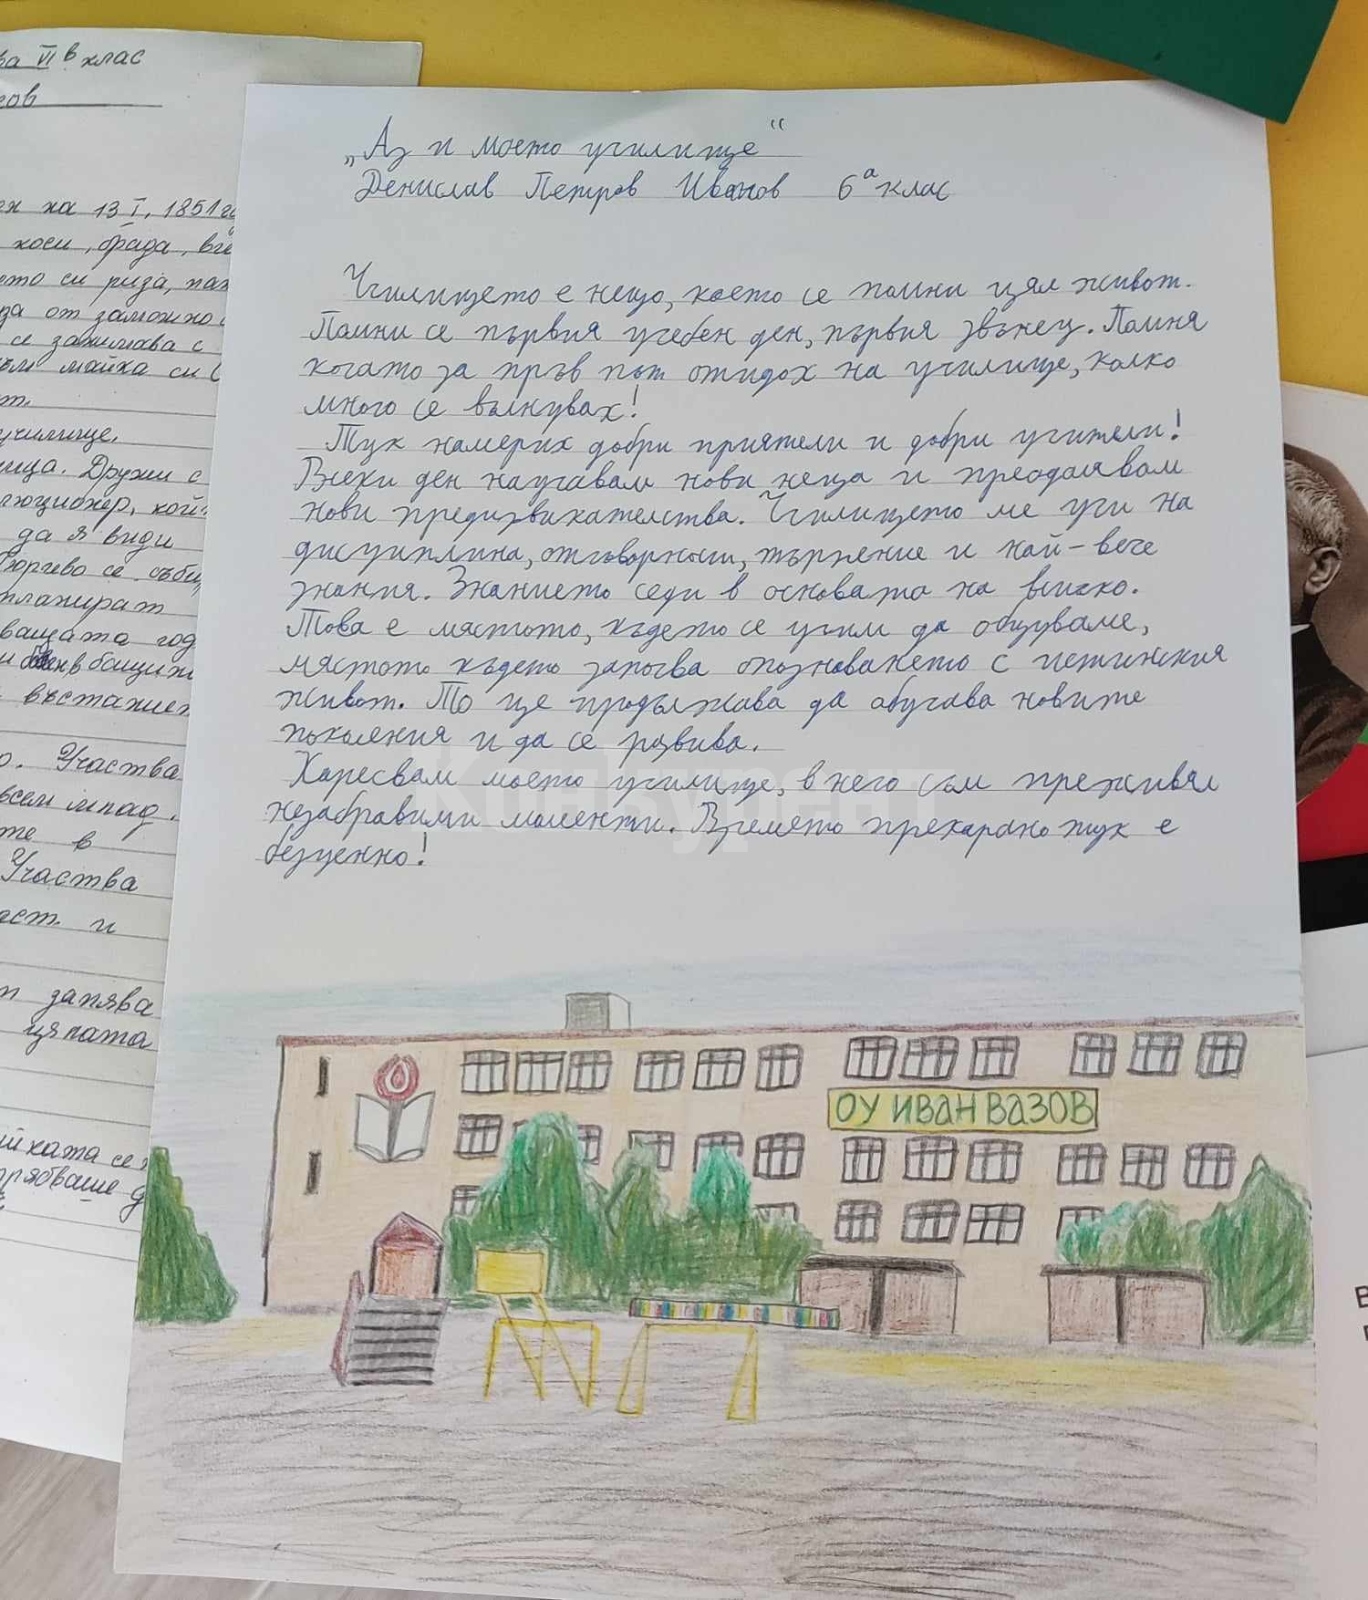 ва VI в клас
„Аз и моето училище“
Денислав Петров Иванов 6а клас
Училището е нещо, което се помни цял живот.
Помни се първия учебен ден, първия звънец. Помня
когато за пръв път отидох на училище, колко
много се вълнувах!
Тук намерих добри приятели и добри учители!
Всеки ден научавам нови неща и преодолявам
нови предизвикателства. Училището ме учи на
дисциплина, отговорност, търпение и най-вече
знания. Знанието седи в основата на всичко.
Това е мястото, където се учим да общуваме,
мястото където започва опознаването с истинския
живот. То ще продължава да обучава новите
поколения и да се развива.
Харесвам моето училище, в него съм преживял
незабравими моменти. Времето прекарано тук е
безценно!
ОУ ИВАН ВАЗОВ
на 13 I, 1851 г
коси, брада,
си риза,
от заможно
се занимава с
майка си
училище.
Дружи с
да я види
се
планират
въстание
Участва
в
Участва
и
запява
цялата
се
Конкурент